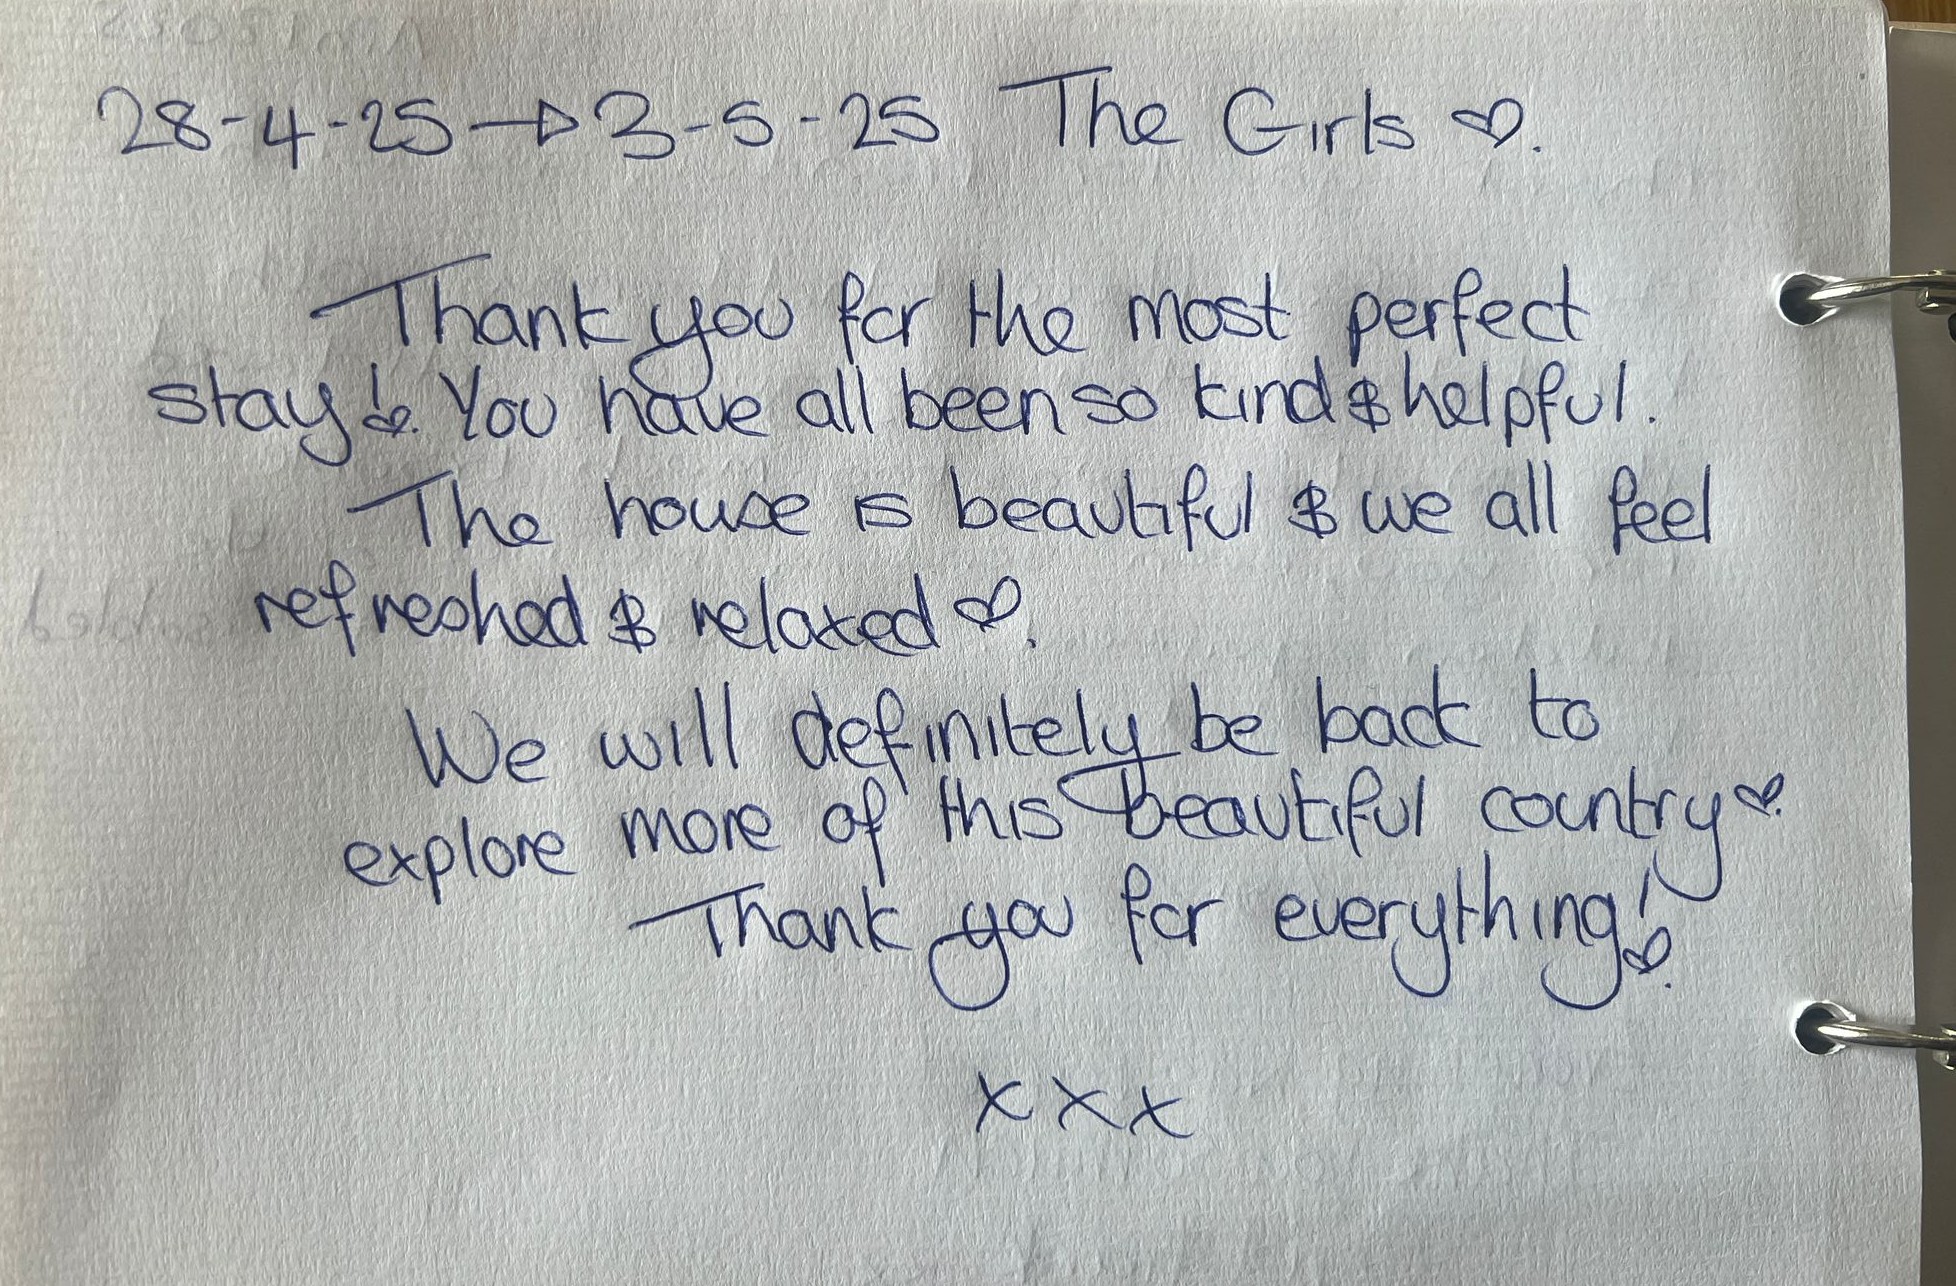 28-4-25 → 3-5-25 The Girls ♡.
Thank you for the most perfect
stay! ♡. You have all been so kind & helpful.
The house is beautiful & we all feel
refreshed & relaxed ♡.
We will definitely be back to
explore more of this beautiful country ♡.
Thank you for everything! ♡.
x x x